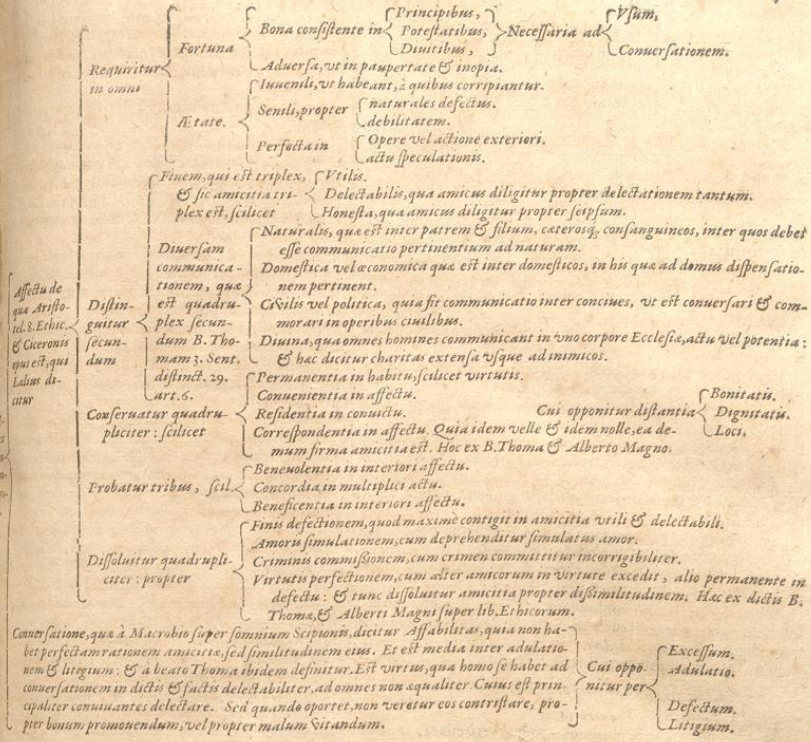 Requiritur in omni
Fortuna
Bona consistente in
Principibus,
Potestatibus,
Diuitibus,
Necessaria ad
Vsum,
Conuersationem.
Aduersa, vt in paupertate & inopia.
Ætate.
Iuuenili, vt habeant, à quibus corripiantur.
Senili, propter
naturales defectus.
debilitatem.
Perfecta in
Opere vel actione exteriori.
actu speculationis.
Affectu de
qua Aristo-
tel. 8. Ethic.
& Ciceronis
opus est, qui
Lælius di-
citur
Distin-
guitur
secun-
dum
Finem, qui est triplex,
& sic amicitia tri-
plex est, scilicet
Vtilis.
Delectabilis, qua amicus diligitur propter delectationem tantum.
Honesta, qua amicus diligitur propter seipsum.
Diuersam
communica-
tionem, quæ
est quadru-
plex secun-
dum B. Tho-
mam 3. Sent.
distinct. 29.
art. 6.
Naturalis, quæ est inter patrem & filium, cæterosq; consanguineos, inter quos debet
esse communicatio pertinentium ad naturam.
Domestica vel œconomica quæ est inter domesticos, in his quæ ad domus dispensatio-
nem pertinent.
Ciuilis vel politica, quia fit communicatio inter conciues, vt est conuersari & com-
morari in operibus ciuilibus.
Diuina, qua omnes homines communicant in vno corpore Ecclesiæ, actu vel potentia:
& hæc dicitur charitas extensa vsque ad inimicos.
Conseruatur quadru-
pliciter: scilicet
Permanentia in habitu, scilicet virtutis.
Conuenientia in affectu.
Residentia in conuictu.
Cui opponitur distantia
Bonitatis.
Dignitatis.
Loci.
Correspondentia in affectu. Quia idem velle & idem nolle, ea de-
mum firma amicitia est. Hoc ex B. Thoma & Alberto Magno.
Probatur tribus, scil.
Beneuolentia in interiori affectu.
Concordia in multiplici actu.
Beneficentia in interiori affectu.
Dissoluitur quadrupli-
citer: propter
Finis defectionem, quod maximè contigit in amicitia vtili & delectabili.
Amoris simulationem, cum deprehenditur simulatus amor.
Criminis commissionem, cum crimen committitur incorrigibiliter.
Virtutis perfectionem, cum alter amicorum in virtute excedit, alio permanente in
defectu: & tunc dissoluitur amicitia propter dissimilitudinem. Hæc ex dictis B.
Thomæ, & Alberti Magni super lib. Ethicorum.
Conuersatione, quæ à Macrobio super somnium Scipionis, dicitur Affabilitas, quia non ha-
bet perfectam rationem amicitiæ, sed similitudinem eius. Et est media inter adulatio-
nem & litigium: & a beato Thoma ibidem definitur. Est virtus, qua homo se habet ad
conuersationem in dictis & factis delectabiliter, ad omnes non æqualiter Cuius est prin-
cipaliter conuiuantes delectare. Sed quando oportet, non veretur eos contristare, pro-
pter bonum promouendum, vel propter malum vitandum.
Cui oppo-
nitur per
Excessum.
Adulatio.
Defectum.
Litigium.